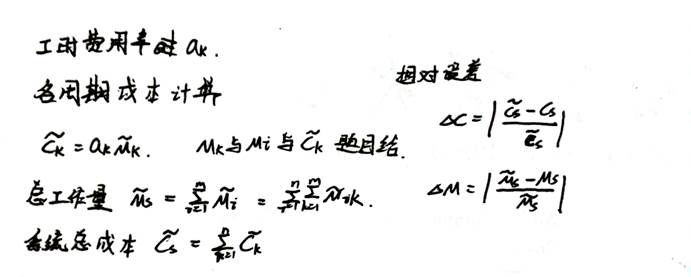 工时费用率 aₖ.
各周期成本计算
C̃ₖ = aₖM̃ₖ. Mₖ与Mᵢ与C̃ₖ 题目给.
总工作量 M̃s = Σᵢ₌₁ⁿ M̃ᵢ = Σᵢ₌₁ⁿ Σₖ₌₁ᵐ M̃ᵢₖ.
系统总成本 C̃s = Σₖ₌₁ⁿ C̃ₖ
相对误差
ΔC = |(C̃s - Cs)/C̃s|
ΔM = |(M̃s - Ms)/M̃s|